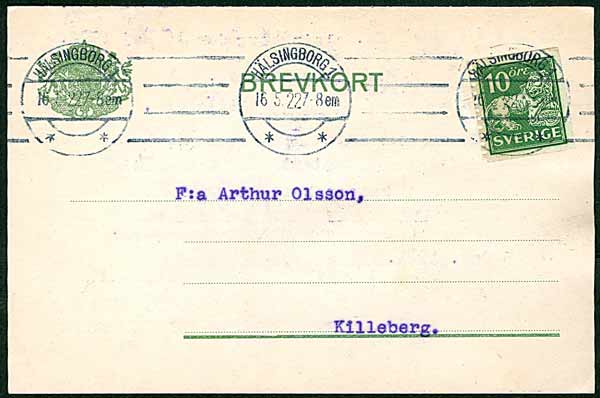 HÄLSINGBORG 1
16 5.22 7-8 em
HÄLSINGBORG 1
16 5.22 7-8 em
HÄLSINGBORG
BREVKORT
10 öre
SVERIGE
F:a Arthur Olsson,
Killeberg.